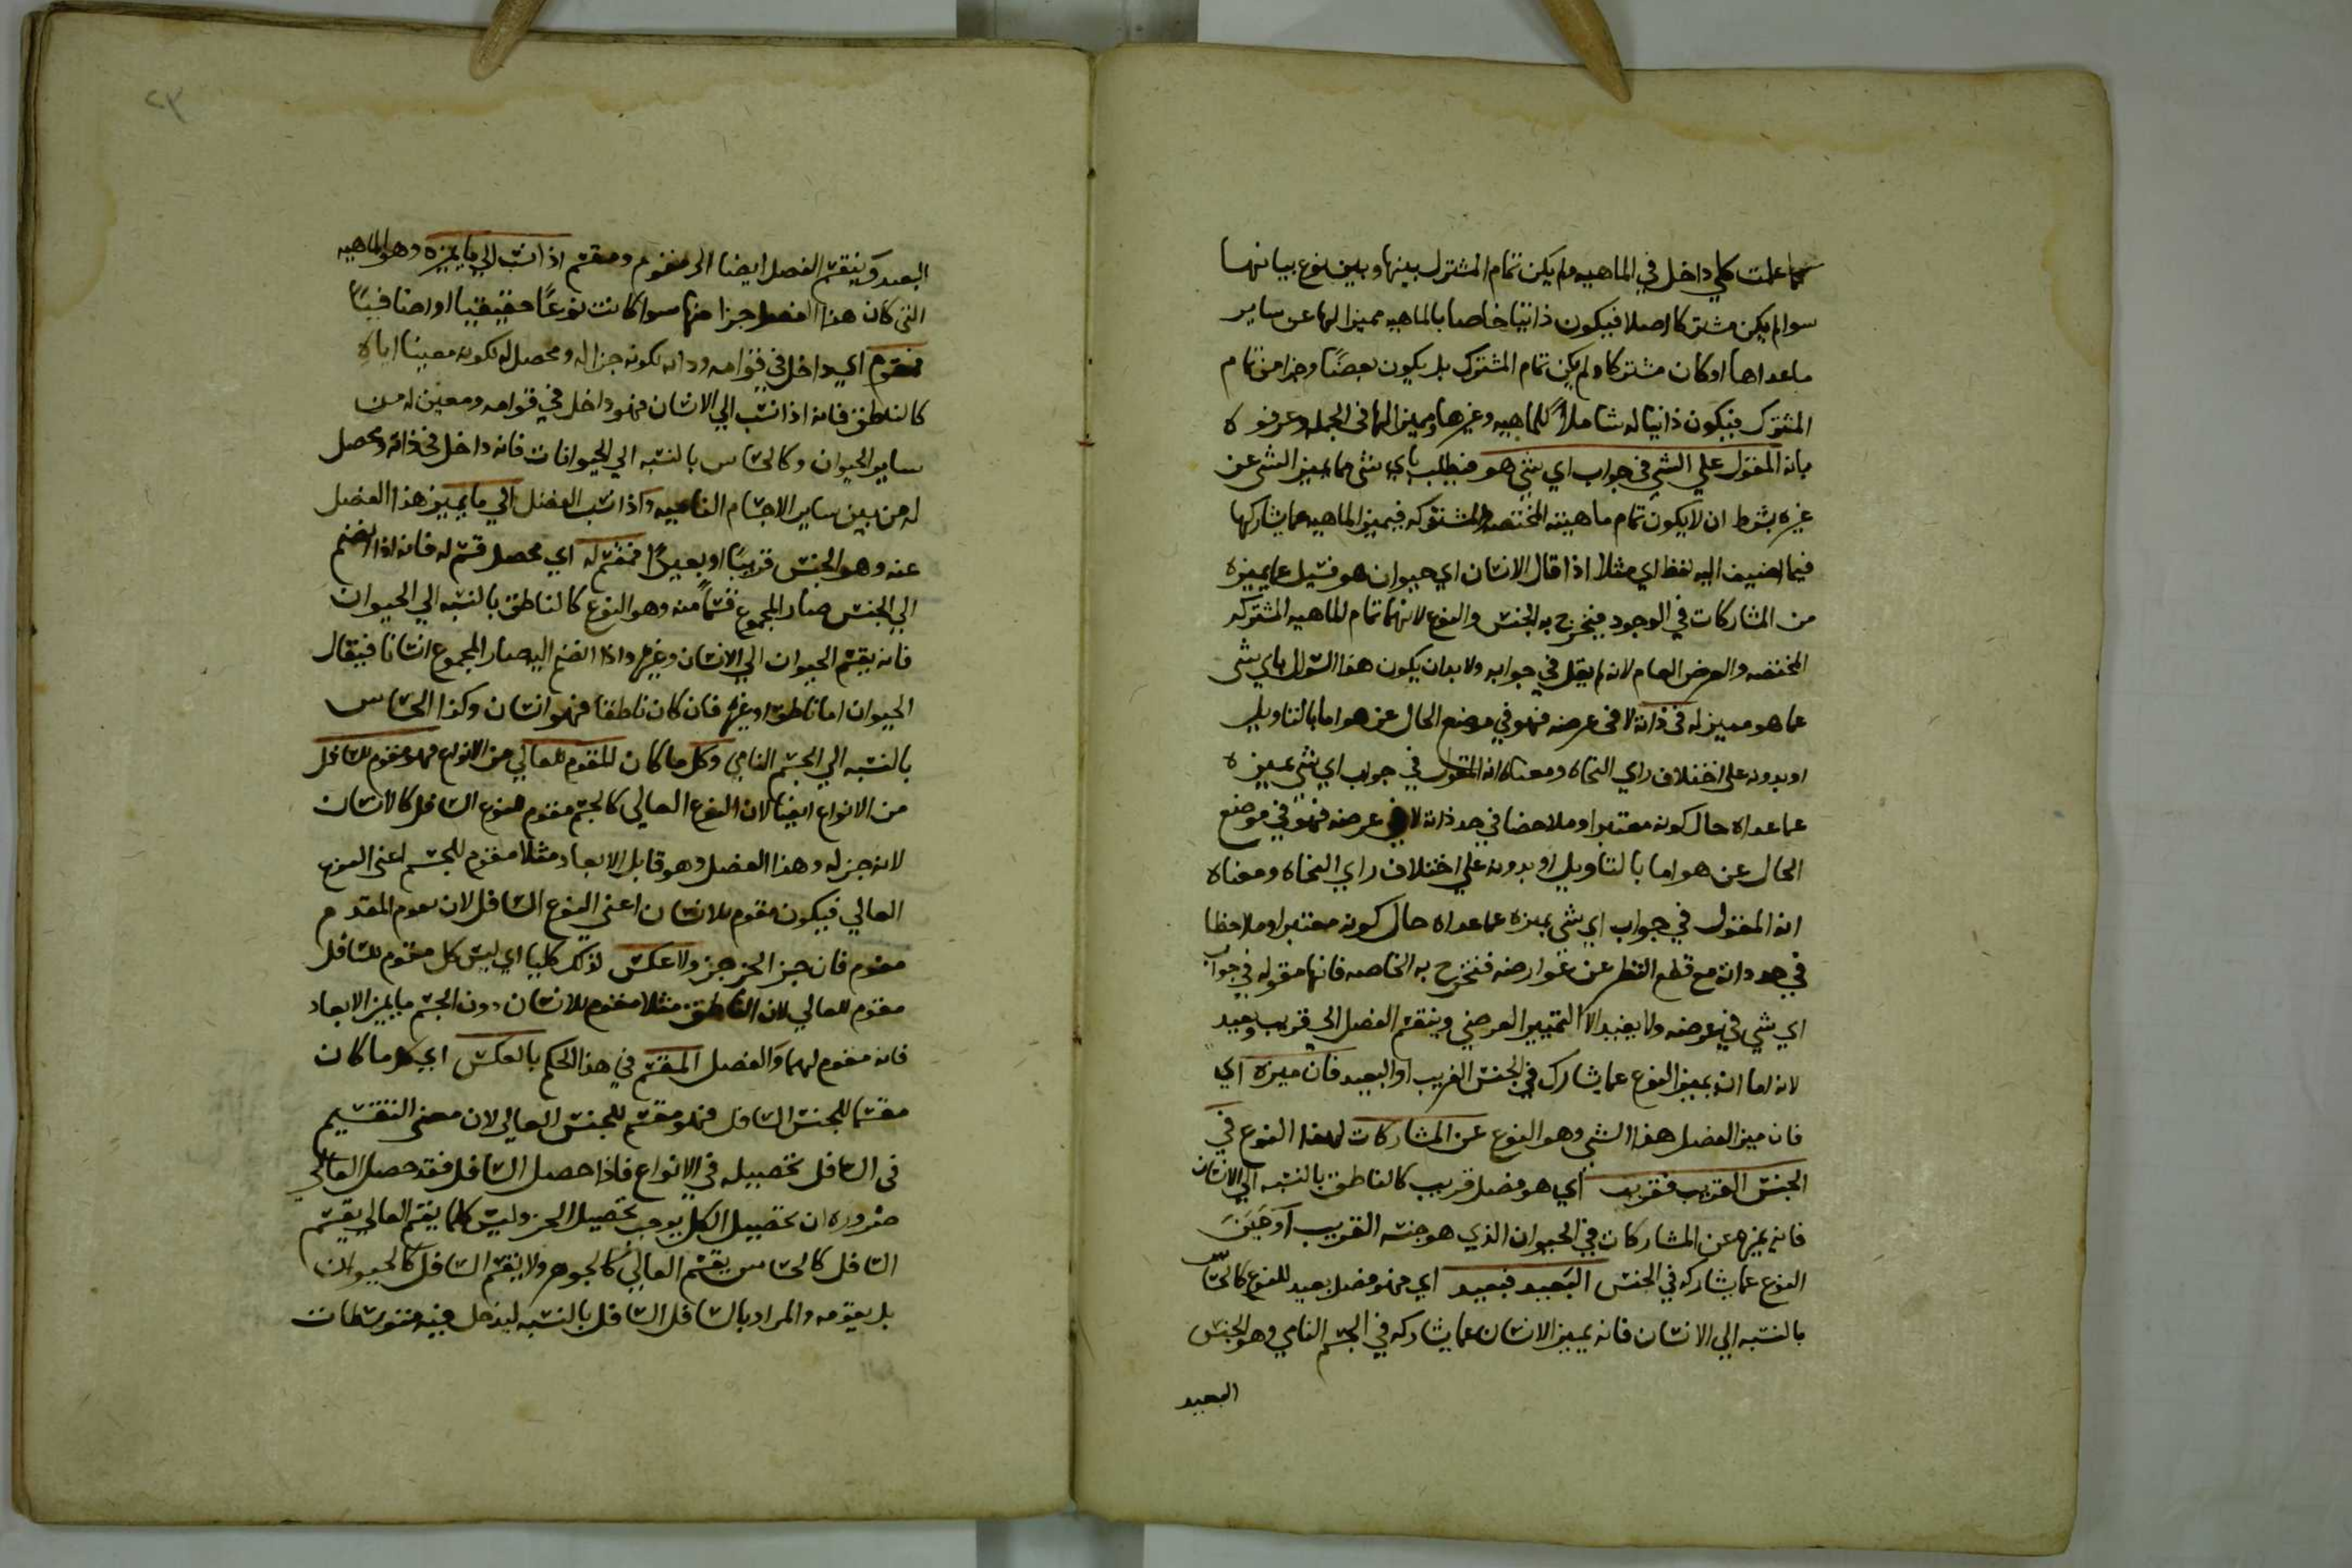 كما علمت كلي داخل في الماهيه ولم يكن تمام المشترك بينها وبين نوع بيانها
سوا لم يكن مشتركا اصلا فيكون ذاتيا خاصا بالماهيه مميزا لها عن ساير
ما عداها او كان مشتركا ولم يكن تمام المشترك بل يكون بعضًا وجزا من تمام
المشترك فيكون ذاتيا له شاملاً للماهيه وغيرها ومميزا لها في الجمله وعرفوه
بانه المقول علي الشي في جواب اي شي هو فيطلب باي شي ما يميز الشي عن
غيره بشرط ان لا يكون تمام ماهيته المختصه والمشتركه فيميز الماهيه عما يشاركها
فيما اضيف اليه لفظ اي مثلا اذا قال الانسان اي حيوان هو فسيل عما يميزه
من المشاركات في الوجود فيخرج به الجنس والنوع لانهما تمام الماهيه المشتركه
المختصه والعرض العام لانه لم يقل في جوابه ولا بدان يكون هذا السوال باي شي
عما هو مميز له في ذاته لا في عرضه فهو في موضع الحال عن هو اما بالتاويل
او بدونه علي اختلاف راي النحاه ومعناه انه المقول في جواب اي شي يميزه
عما عداه حال كونه معتبرا وملاحضا في حد ذاته لا في عرضه فهو في موضع
الحال عن هو اما بالتاويل او بدونه علي اختلاف راي النحاه ومعناه
انه المقول في جواب اي شي يميزه عما عداه حال كونه معتبرا وملاحظا
في حد ذاته مع قطع النظر عن عوارضه فتخرج به الخاصه فانها مقوله في جواب
اي شي في عرضه ولا يفيد الا التمييز العرضي وينقسم الفصل الي قريب وبعيد
لانه اما ان يميز النوع عما يشارك في الجنس القريب او البعيد فان ميزه اي
فان ميز الفصل هذا الشي وهو النوع عن المشاركات لهذا النوع في
الجنس القريب فقريب اي هو فصل قريب كالناطق بالنسبه الي الانسان
فانه يميزه عن المشاركات في الحيوان الذي هو جنسه القريب او مَيَّزَ
النوع عما يشاركه في الجنس البَعيد فبعيد اي فهو فصل بعيد للنوع كالحسّاس
بالنسبه الي الانسان فانه يميز الانسان عما يشاركه في الجسم النامي وهو الجنس
البعيد
٢٣
البعيد وَينقسم الفصل ايضا الي مقوم ومقسم اذا نسب الي ما يميزه وهو الماهيه
التي كان هذا الفصل جزا منها سوا كانت نوعًا حقيقيا او اضافيًا
فمقوم اي داخل في قوامه وذاته لكونه جزا له ومحصل له لكونه معينا اياه
كالناطق فانه اذا نسب الي الانسان فهو داخل في قوامه ومعيّن له من
ساير الحيوان وكالحساس بالنسبه الي الحيوانات فانه داخل في ذاته ومحصل
له من بين ساير الاجسام الناميه واذا نسب الفصل الي ما يميز هذا الفصل
عنه وهو الجنس قريبًا او بعيدًا فمقسم له اي محصل قسم له فانه اذا انضم
الي الجنس صار المجموع قسماً منه وهو النوع كالناطق بالنسبه الي الحيوان
فانه يقسم الحيوان الي الانسان وغيره واذا انضم اليه صار المجموع انسانا فيقال
الحيوان اما ناطق او غيره فان كان ناطقا فهو انسان وكذا الحساس
بالنسبه الي الجسم النامي وكل ما كان المقوم للعالي من الانواع فهو مقوم للسافل
من الانواع ايضا لان النوع العالي كالجسم مقوم للنوع السافل كالانسان
لانه جز له وهذا الفصل وهو قابل الابعاد مثلا مقوم للجسم اعني النوع
العالي فيكون مقوم للانسان اعني النوع السافل لان مقوم المقوم
مقوم فان جز الجز جز ولا عكس لذلك كليا اي ليس كل مقوم للسافل
مقوم للعالي لان الناطق مثلا مقوم للانسان دون الجسم الابعاد
فانه مقوم لهما وَالفصل المقسم في هذا الحكم بالعكس اي كل ما كان
مقسما للجنس السافل فهو مقسم للجنس العالي لان معني التقسيم
في السافل تحصيله في الانواع فاذا حصل السافل فقد حصل العالي
ضروره ان تحصيل الكل يوجب تحصيل الجز وليس كلما يقسم العالي يقسم
السافل كالحساس يقسم العالي كالجوهر ولا يقسم السافل كالحيوان
بل يقومه والمراد بالسافل السافل بالنسبه ليدخل فيه متوسطات